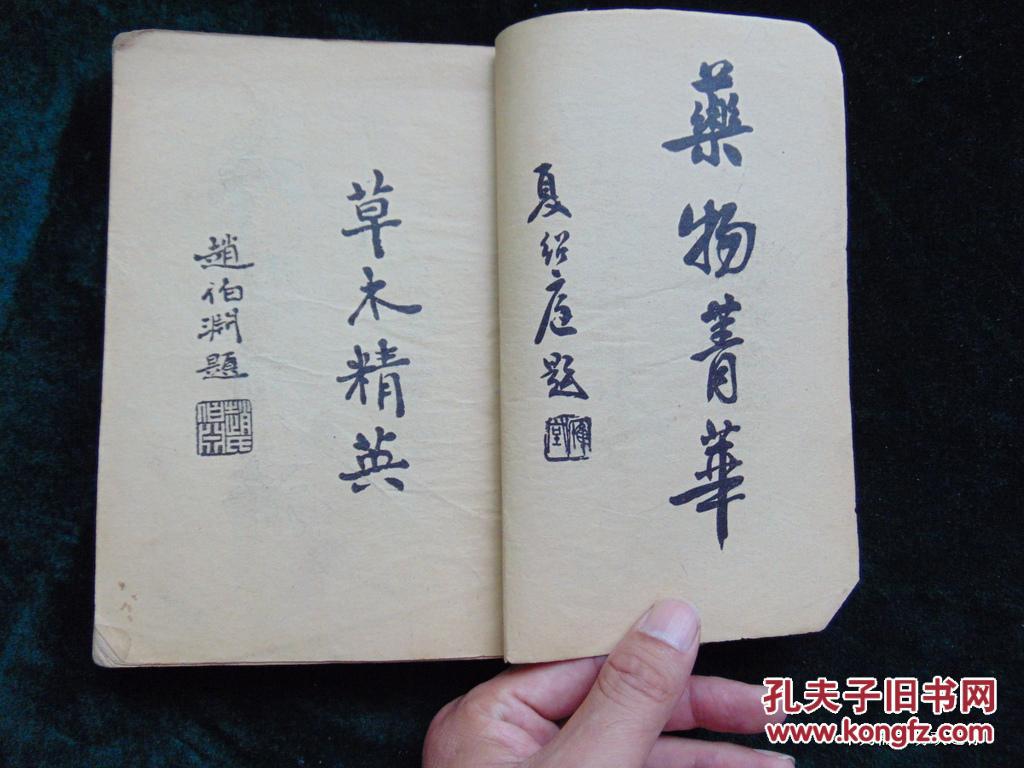 藥物菁華
夏紹庭題
草木精英
趙伯淵題
孔夫子旧书网
www.kongfz.com